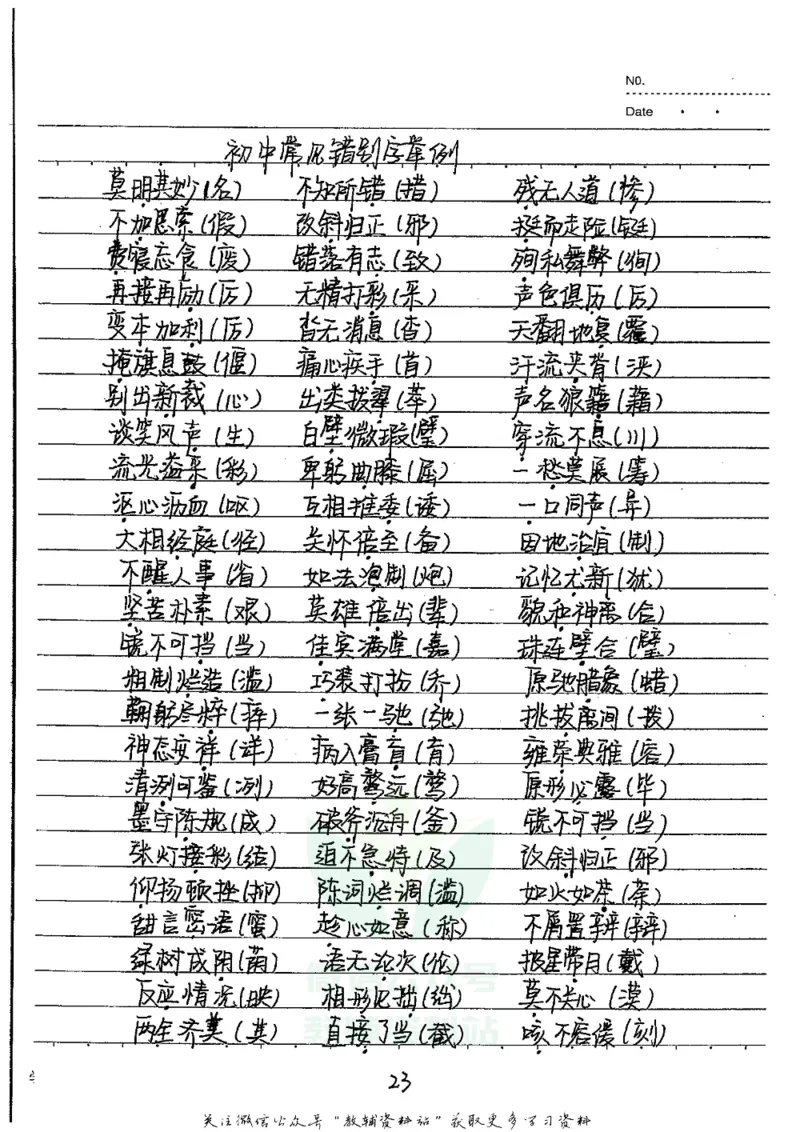 NO.
Date
初中常见错别字举例
莫明其妙(名) 不知所错(措) 残无人道(惨)
不加思索(假) 改斜归正(邪) 挺而走险(铤)
费寝忘食(废) 错落有志(致) 殉私舞弊(徇)
再接再励(厉) 无精打彩(采) 声色俱历(厉)
变本加利(厉) 沓无消息(杳) 天翻地复(覆)
掩旗息鼓(偃) 痛心疾手(首) 汗流夹背(浃)
别出新裁(心) 出类拔翠(萃) 声名狼籍(藉)
谈笑风声(生) 白壁微瑕(璧) 穿流不息(川)
流光溢采(彩) 卑躬曲膝(屈) 一愁莫展(筹)
沤心沥血(呕) 互相推委(诿) 一口同声(异)
大相经庭(径) 关怀倍至(备) 因地治宜(制)
不醒人事(省) 如法泡制(炮) 记忆尤新(犹)
坚苦朴素(艰) 英雄倍出(辈) 貌和神离(合)
锐不可挡(当) 佳宾满堂(嘉) 珠连壁合(璧)
粗制烂造(滥) 巧装打扮(乔) 原驰腊象(蜡)
鞠躬尽粹(瘁) 一张一驰(弛) 挑拔离间(拨)
神态安祥(详) 病入膏盲(肓) 雍荣典雅(容)
清测可鉴(冽) 好高鹜远(骛) 原形必露(毕)
墨守陈规(成) 破斧沉舟(釜) 锐不可挡(当)
张灯接彩(结) 迫不急待(及) 改斜归正(邪)
仰扬顿挫(抑) 陈词烂调(滥) 如火如茶(荼)
甜言密语(蜜) 趁心如意(称) 不屑置辛辛(辩)
绿树成阴(荫) 语无论次(伦) 披星带月(戴)
反应情况(映) 相形见拙(绌) 莫不关心(漠)
两全济美(其) 直接了当(截) 咳不容缓(刻)
23
关注微信公众号"教辅资料站"获取更多学习资料